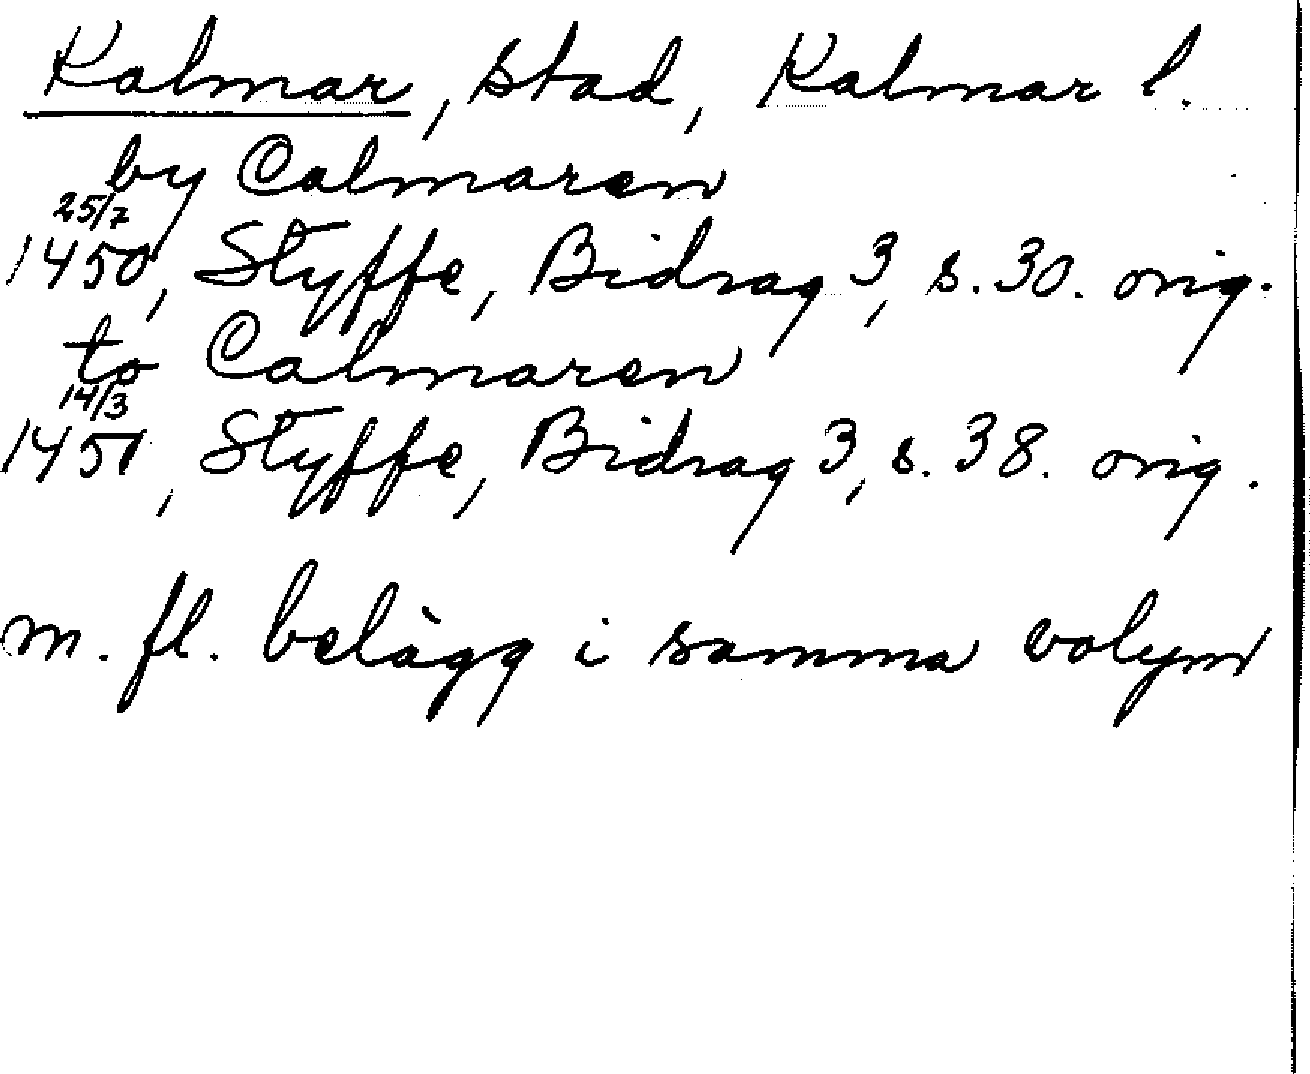 Kalmar, stad, Kalmar l.
by Calmaren
25/7
1450, Styffe, Bidrag 3, s. 30. orig.
to Calmaren
14/3
1451, Styffe, Bidrag 3, s. 38. orig.
m. fl. belägg i samma volym